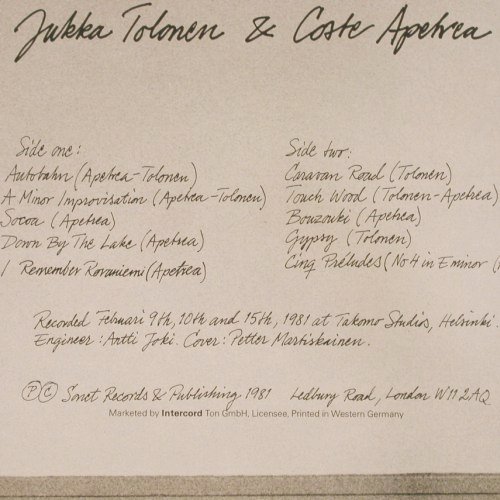 Jukka Tolonen & Coste Apetrea
Side one:
Autobahn (Apetrea-Tolonen)
A Minor Improvisation (Apetrea-Tolonen)
Socoa (Apetrea)
Down By The Lake (Apetrea)
I Remember Rovaniemi (Apetrea)
Side two:
Caravan Road (Tolonen)
Touch Wood (Tolonen-Apetrea)
Bouzouki (Apetrea)
Gypsy (Tolonen)
Cinq Préludes (No 4 in E minor (
Recorded Februari 9th, 10th and 15th, 1981 at Takomo Studios, Helsinki.
Engineer: Antti Joki. Cover: Petter Martiskainen.
Ⓟ Ⓒ Sonet Records & Publishing 1981 Ledbury Road, London W11 2AQ
Marketed by Intercord Ton GmbH, Licensee, Printed in Western Germany